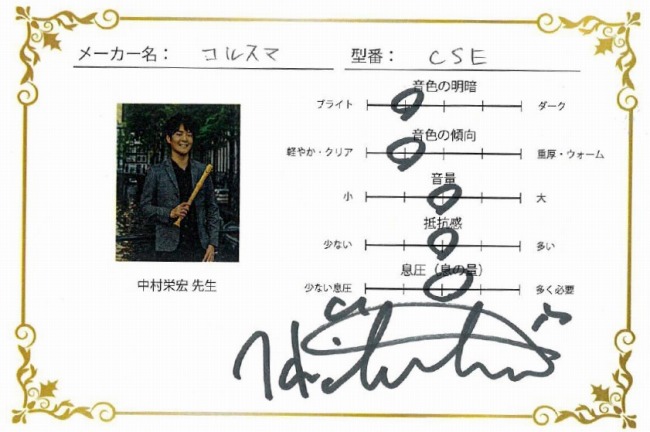 メーカー名： コルスマ 型番： CSE
音色の明暗
ブライト ダーク
音色の傾向
軽やか・クリア 重厚・ウォーム
音量
小 大
抵抗感
少ない 多い
息圧（息の量）
少ない息圧 多く必要
中村栄宏 先生